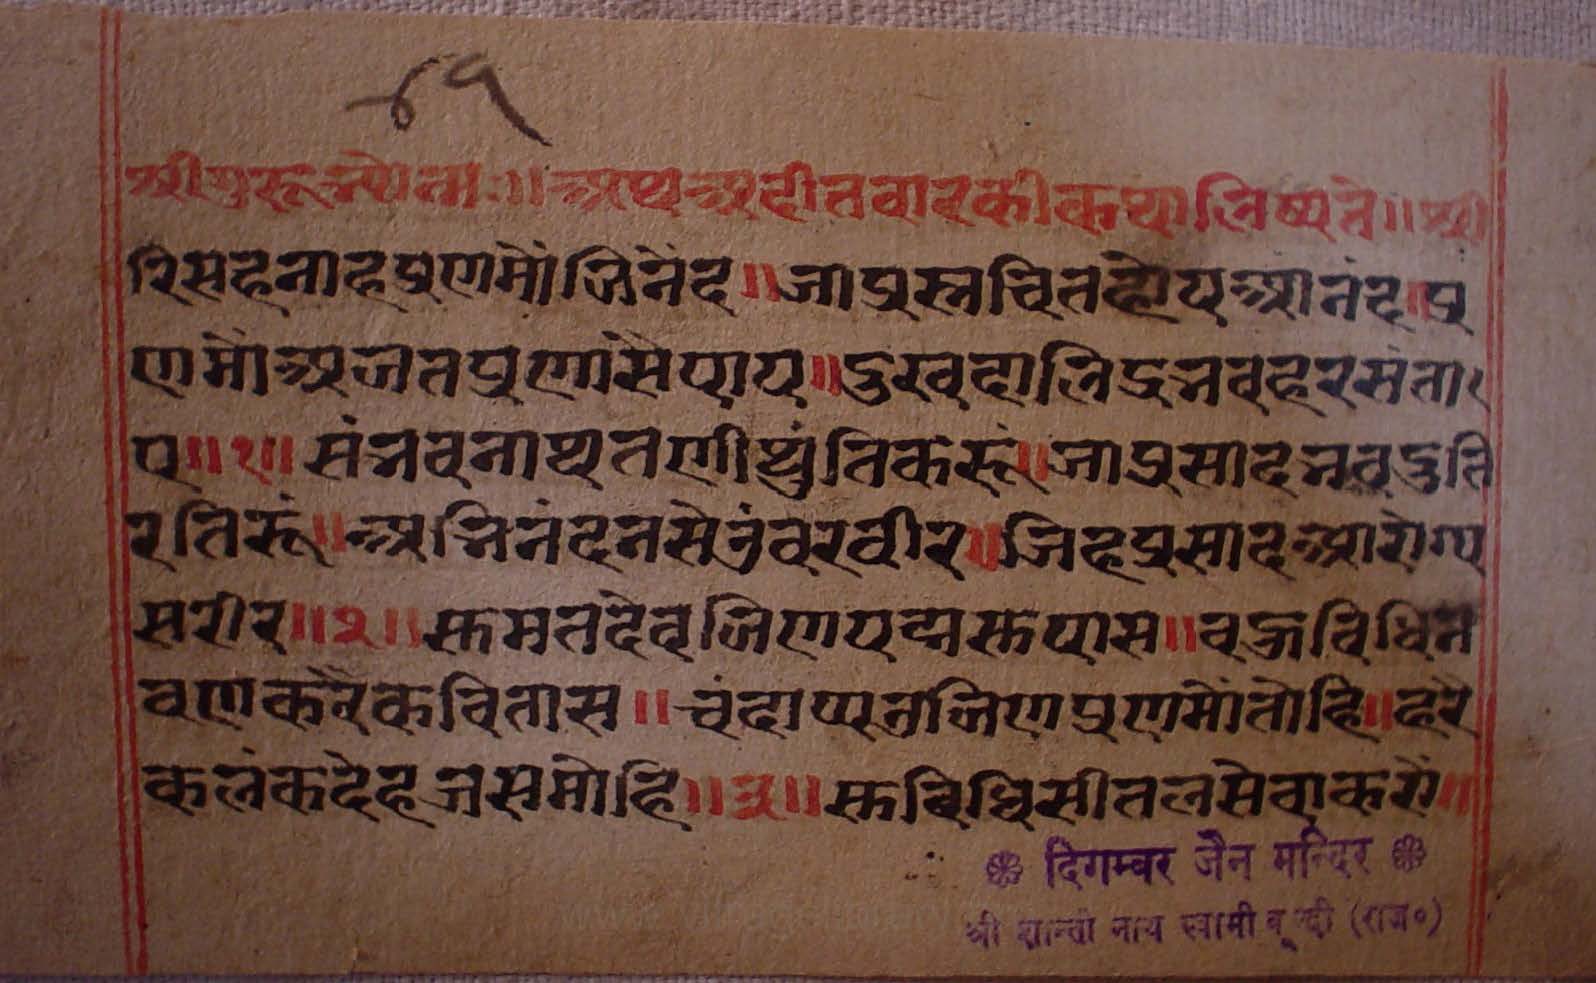 ४१
श्रीगुरुभ्योनमः॥अथअदीतवारकीकथालिष्यते॥श्री
रिसहनाहप्रणमौंजिनंद॥जाप्रसन्नचितहोयआनंद॥प्र
णमौंअजतप्रणासैपाप॥दुखदालिद्रभवहरसंता
प॥१॥संभवनाथतणीथुंतिकरूं॥जाप्रसादभवदुति
रतिरूं॥अभिनंदनसेउंवरवीर॥जिहप्रसादआरोग्य
सरीर॥२॥सुमतदेवजिणपद्मसुपास॥बजविधिन
वणकरैकवितास॥चंदाप्रभजिणप्रणमौंतोहि॥हरै
कलंकदेहजसमोहि॥३॥सुविधिसीतलसेवाकरौं॥
दिगम्बर जैन मन्दिर
श्री शान्ती नाथ स्वामी बून्दी (राज०)